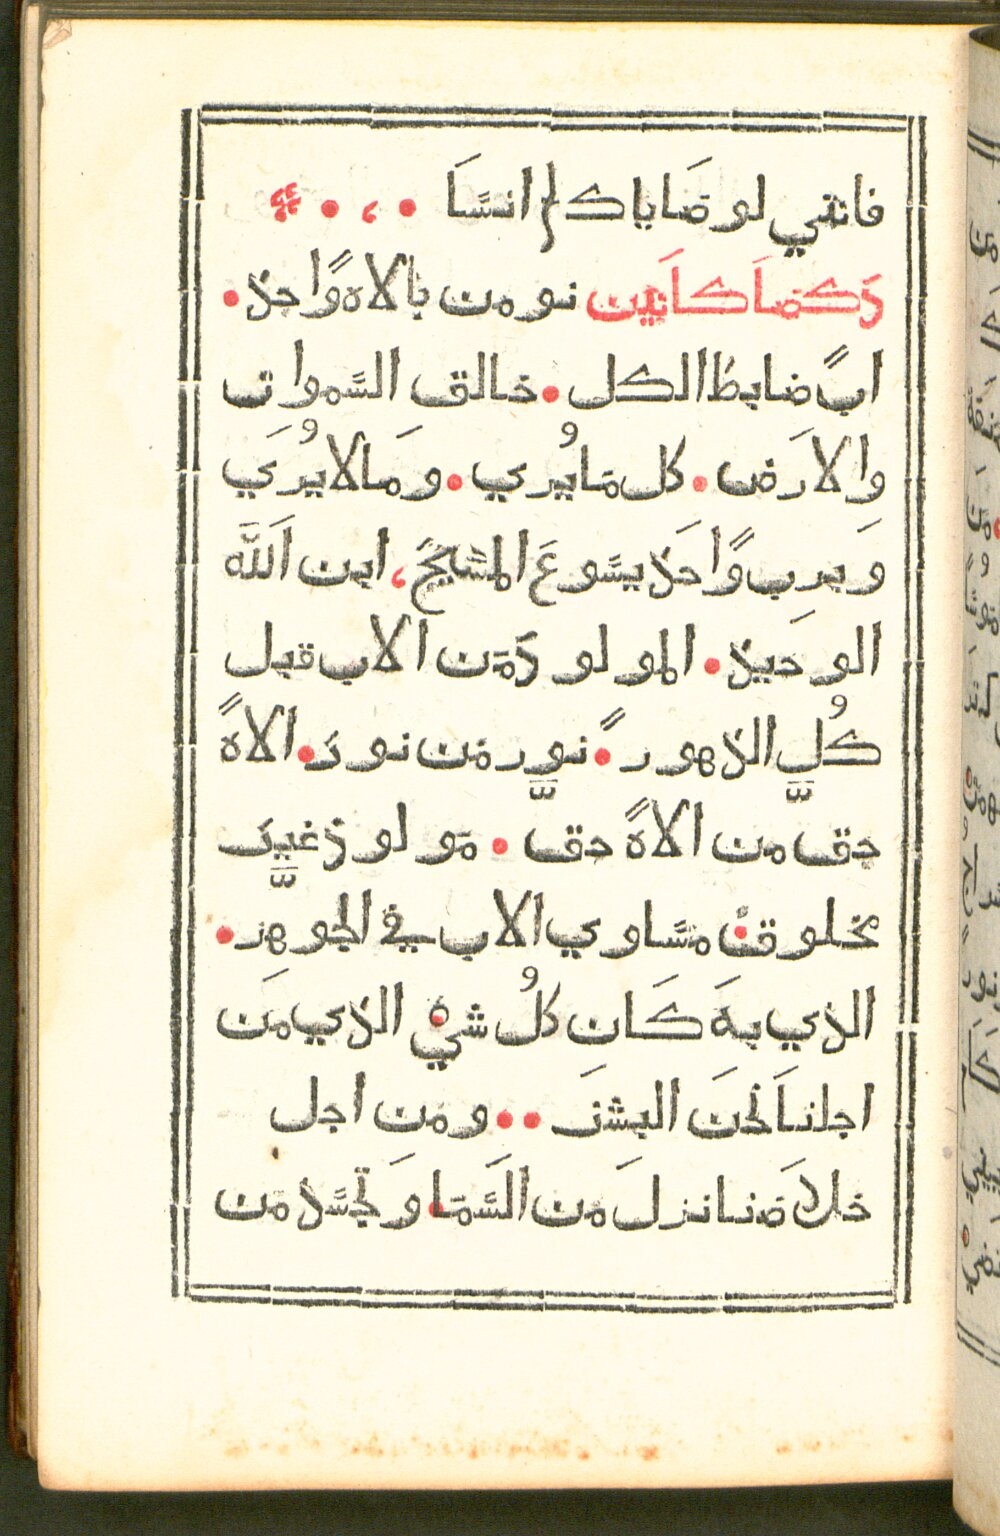 فانني لوصاياك لم انسَا
دَكصَاكاَنين نومن بالاهٍ وَاحِدٍ
ابٍ ضابط الكل. خالق السَّموات
والارَض. كل مَايُري. ومَالايُرَي
وَبربٍ وَاحَد يسَوعَ المسَيحَ، ابن اَللَّه
الوحيد. المولودَمَن الاب قبل
كُلِّ الدهور. نورٍ مَن نورَ. الاهً
حق من الاهً حق. مَولودغيرَ
مخلوق. مسَاوي الاب في الجوهر.
الذي بهَ كَان كلُ شيْ الذي مَن
اجلناَ نحَن البشرَ.. ومَن اجل
خلاصَنا نزلَ مَن السَّمَا وَتجسَد من